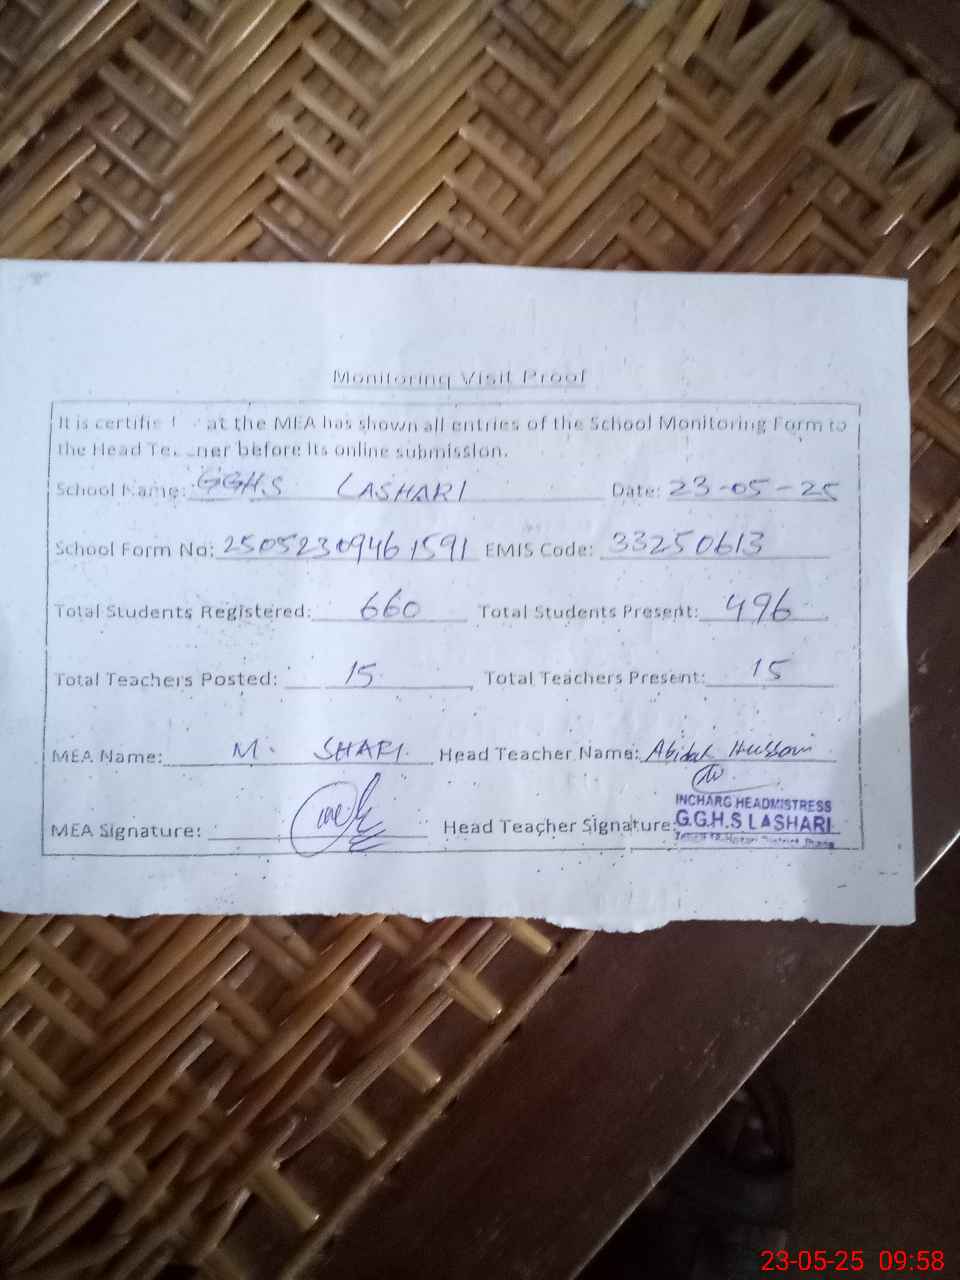 Monitoring Visit Proof
It is certifie at the MEA has shown all entries of the School Monitoring Form to
the Head before its online submission.
School Name: GGH.S LASHARI Date: 23-05-25
School Form No: 2505230946 1591 EMIS Code: 33250613
Total Students Registered: 660 Total Students Present: 496
Total Teachers Posted: 15 Total Teachers Present: 15
MEA Name: M. SHAFI Head Teacher Name: Abidah Hussain
MEA Signature: Head Teacher Signature:
INCHARG HEADMISTRESS
G.G.H.S LASHARI
23-05-25 09:58